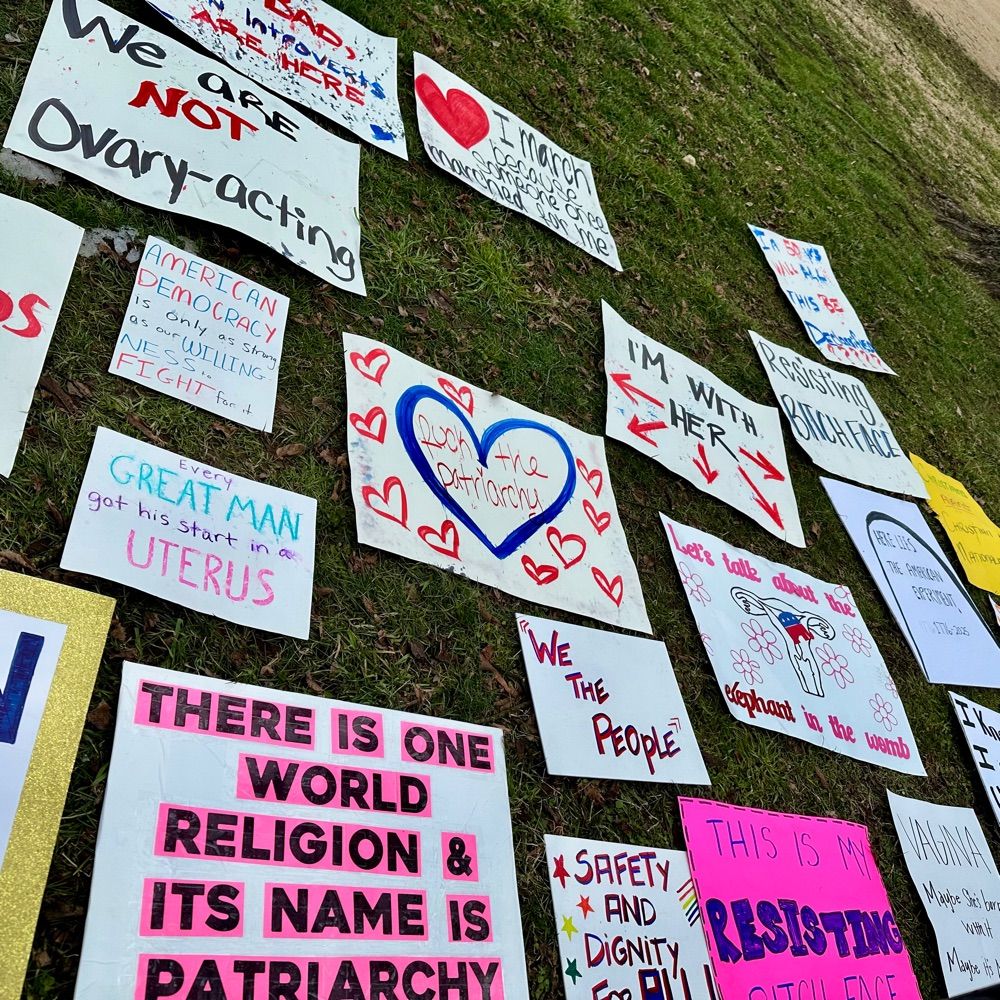 BAD,
Introverts
ARE HERE
We are
NOT
Ovary-acting
I march
because
someone once
marched for me
AMERICAN
DEMOCRACY
is only as strong
as our WILLING
NESS to
FIGHT for it
Every
GREAT MAN
got his start in a
UTERUS
fuck the
patriarchy
I'M WITH
HER
In 50 YRS
WILL ALL
THIS BE
Resisting
BITCHFACE
Christian
Nationali
HERE LIES
THE AMERICAN
EXPERIMENT,
1776-2025
Let's talk about the
elephant in the womb
"WE
THE
PEOPLE"
THERE IS ONE
WORLD
RELIGION &
ITS NAME IS
PATRIARCHY
SAFETY
AND
DIGNITY
FOR ALL
THIS IS MY
RESISTING
BITCH FACE
I Kn
I
VAGINA
Maybe She's born
with it
Maybe it's